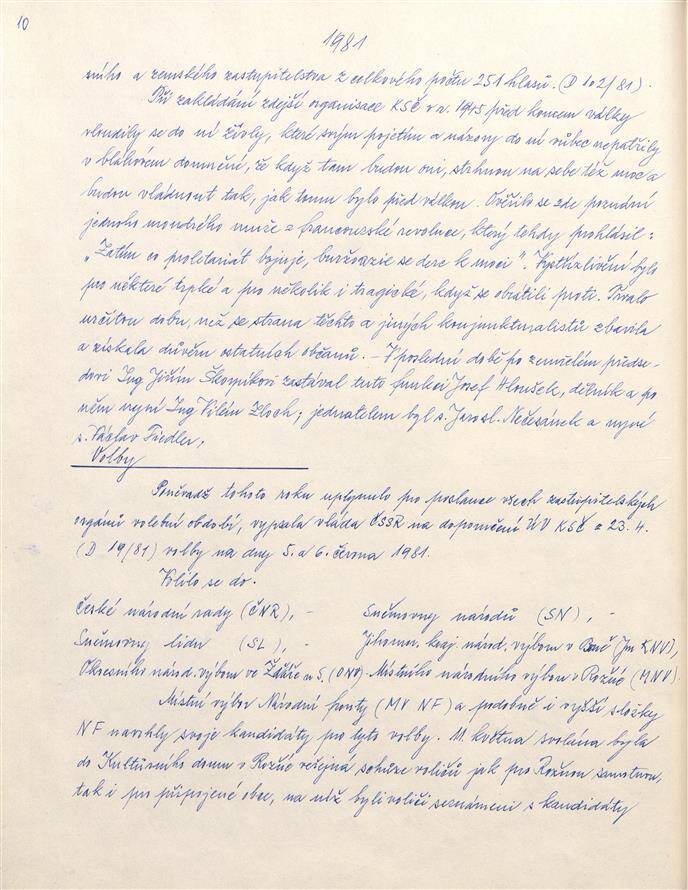 10
1981
sního a zemského zastupitelstva z celkového počtu 251 hlasů. (D 102/81).
Při zakládání zdejší organisace KSČ v r. 1945 před koncem války
vloudily se do ní živly, které svým pojetím a názory do ní vůbec nepatřily
v bláhovém domnění, že když tam budou oni, strhnou na sebe též moc a
budou vládnout tak, jak tomu bylo před válkou. Ověřilo se zde poznání
jednoho moudrého muže z francouzské revoluce, který tehdy prohlásil:
„Zatím co proletariát bojuje, buržoazie se dere k moci". Vystřízlivění bylo
pro některé trpké a pro několik i tragické, když se obrátili proti. Trvalo
určitou dobu, než se strana těchto a jiných konjunkturalistů zbavila
a získala důvěru ostatních občanů. – V poslední době po zemřelém předse-
dovi Ing Jiřím Škorpíkovi zastával tuto funkci Josef Hloušek, dělník a po
něm nyní Ing Vilém Zloch; jednatelem byl s. Jarosl. Nečesánek a nyní
s. Václav Fiedler,
Volby
Poněvadž tohoto roku uplynulo pro poslance všech zastupitelských
orgánů volební období, vypsala vláda ČSSR na doporučení ÚV KSČ z 23. 4.
(D 19/81) volby na dny 5. a 6. června 1981.
Volilo se do.
České národní rady (ČNR), – Sněmovny národů (SN), –
Sněmovny lidu (SL), – Jihomor. kraj. národ. výboru v Brně (Jm KNV),
Okresního národ. výboru ve Žďáře n. S. (ONV). Místního národního výboru v Rožné (MNV).
Místní výbor Národní fronty (MV NF) a podobně i vyšší složky
NF navrhly svoje kandidáty pro tyto volby. 11. května svolána byla
do Kulturního domu v Rožné veřejná schůze voličů jak pro Rožnou samotnou,
tak i pro připojené obce, na níž byli voliči seznámeni s kandidáty